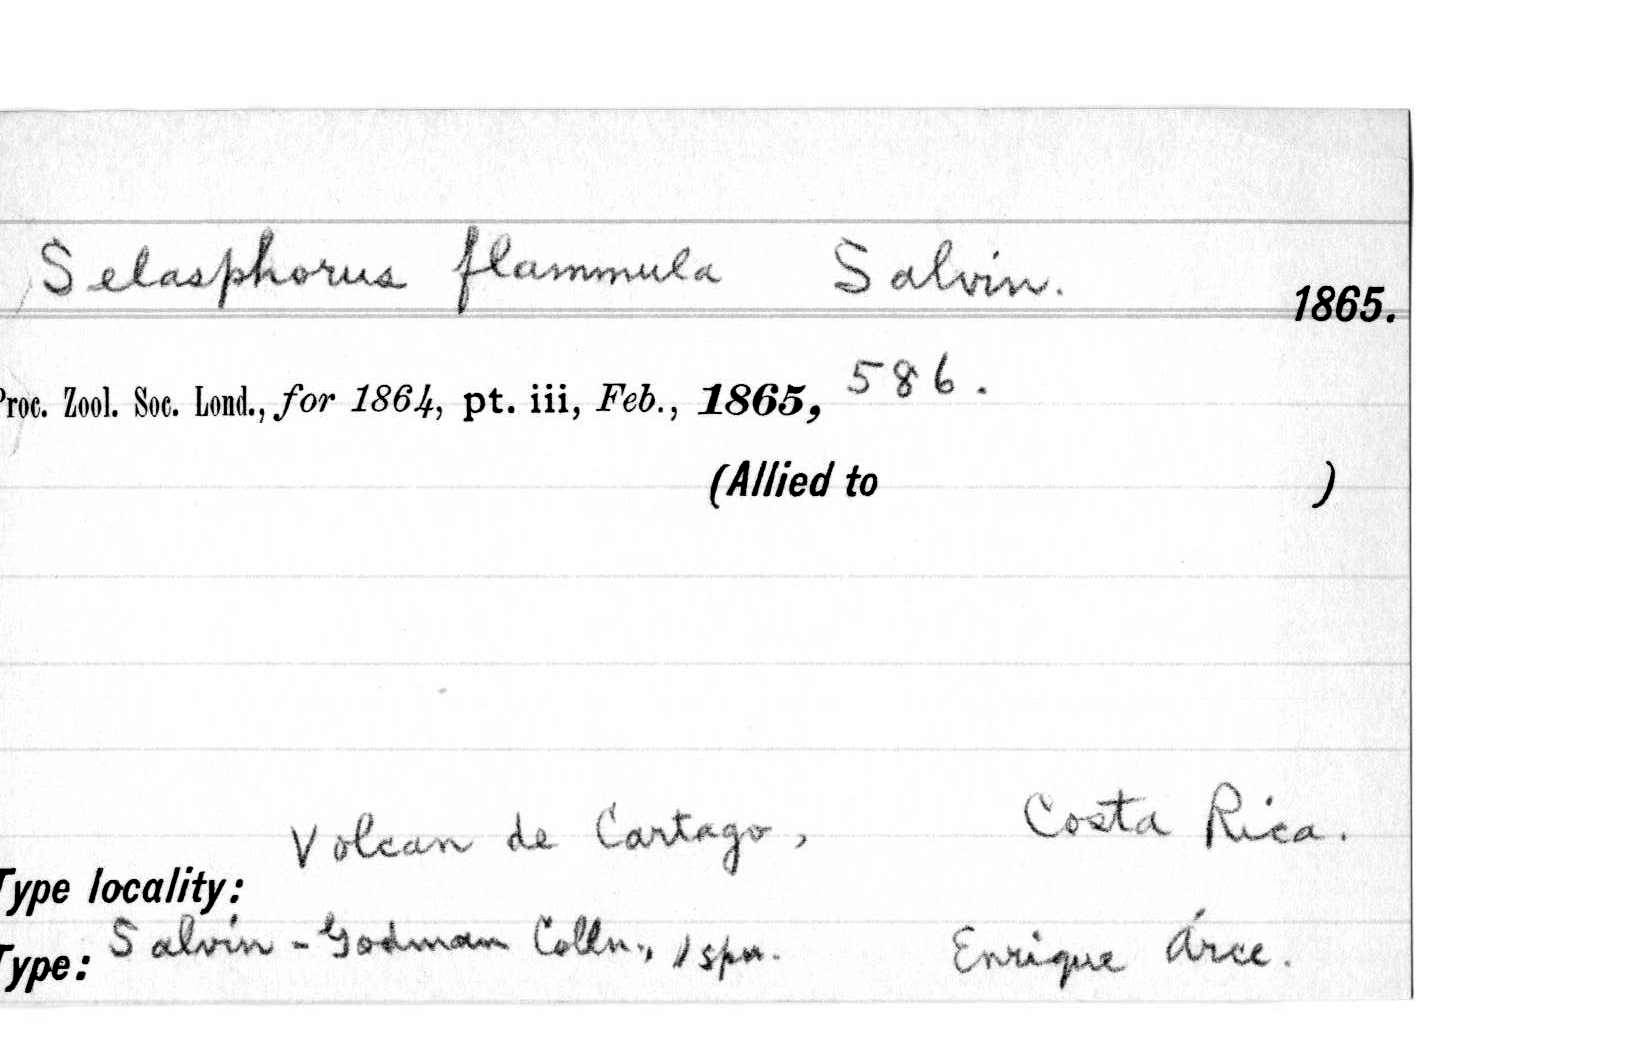 Selasphorus flammula Salvin. 1865.
Proc. Zool. Soc. Lond., for 1864, pt. iii, Feb., 1865, 586.
(Allied to )
Volcan de Cartago, Costa Rica.
Type locality:
Type: Salvin-Godman Colln., 1 spm. Enrique Árce.